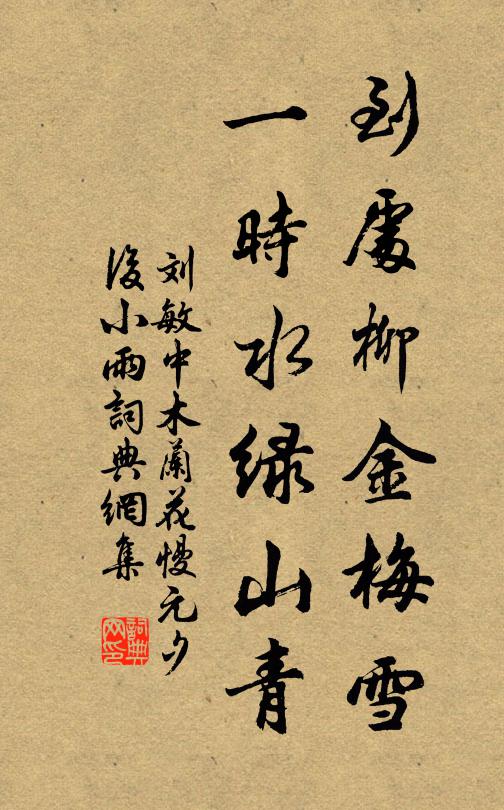 到處柳金梅雪
一時水绿山青
刘敏中木蘭花慢元夕
後小雨詞典網集
詞典
网印